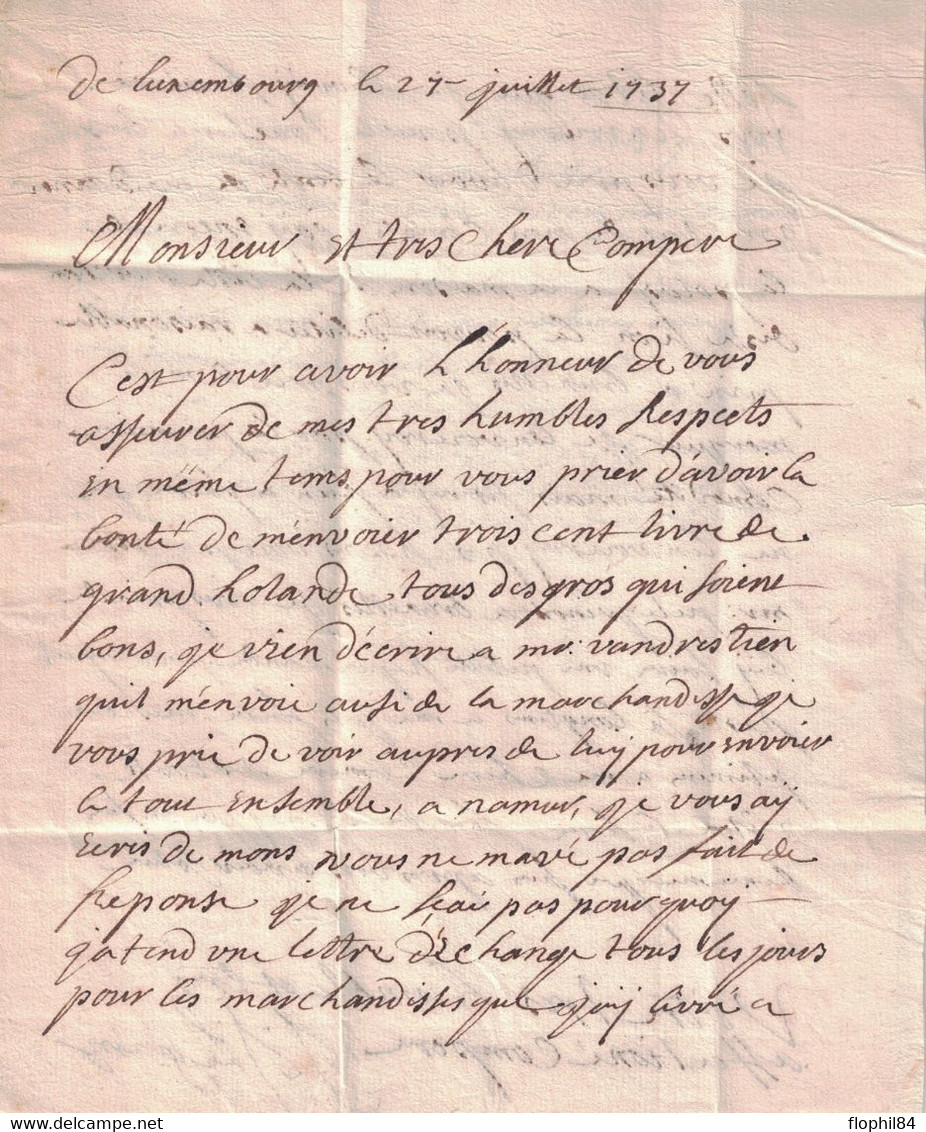 de luxembourg le 27 juillet 1737
Monsieur et tres chere Compere
C'est pour avoir l'honneur de vous
asseurer de mes tres humbles Respects
en même tems pour vous prier d'avoir la
bonté de m'envoier trois cent livre de
grand holande tous des gros qui soient
bons, je vien d'écrire a mr vandrestien
quil m'envoie ausi de la marchandisse je
vous prie de voir aupres de luy pour envoier
le tout ensemble, a namur, je vous aÿ
écris de mons vous ne mavé pas fait de
Reponse je ne sçai pas pourquoy
jatend vne lettre d'échange tous les jours
pour les marchandisses que j'ay livré a
www.delcampe.net
flophil84